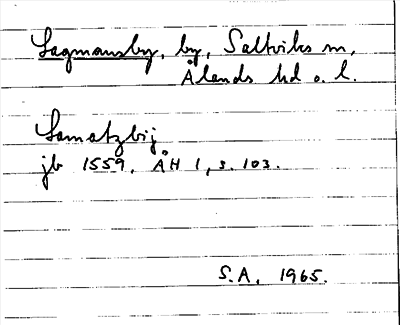 Lagmansby, by, Saltviks sn,
Ålands hd o. l.
Lamatzbij
jb 1559, ÅH 1, s. 103.
S.A. 1965.